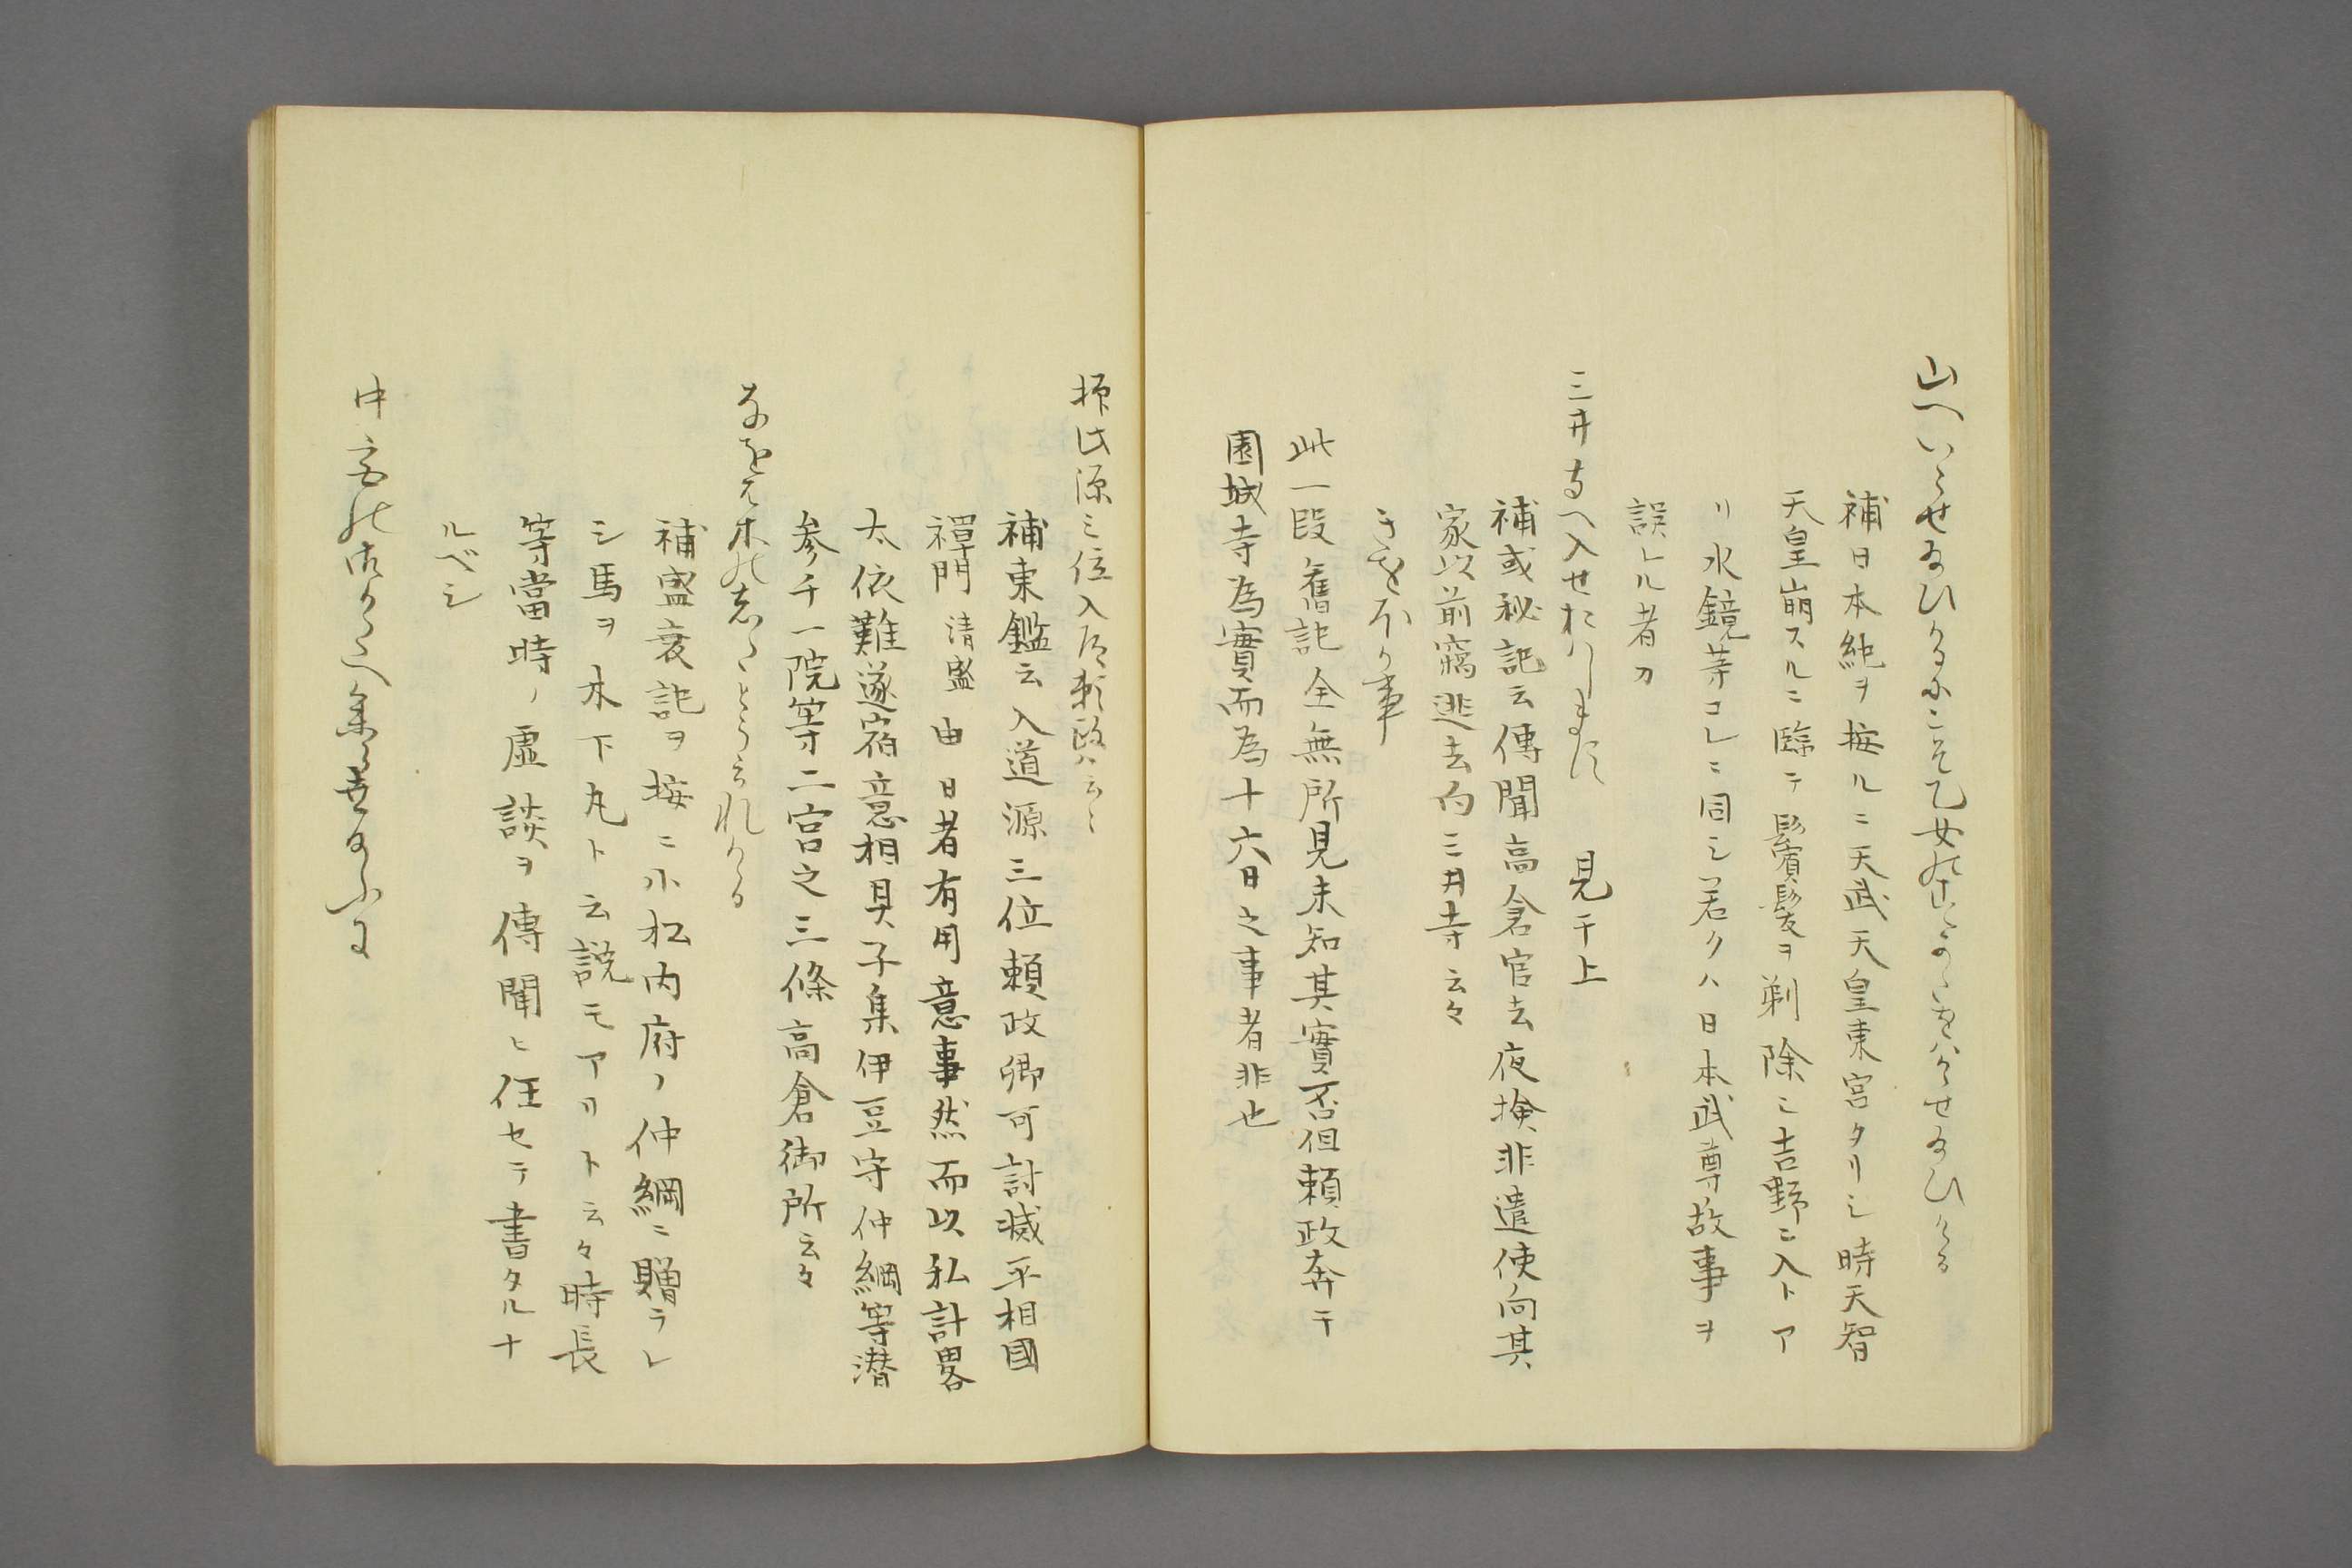 山へいらせ給ひけるにこそ乙女の姿をはからせ給ひける
補日本紀ヲ按ルニ天武天皇東宮タリシ時天智
天皇崩スルニ臨テ鬢髪ヲ剃除シ吉野ニ入トア
リ水鏡等コレニ同シ若クハ日本武尊故事ヲ
誤レル者カ
三井寺へ入せおはします 見于上
補或秘記云傳聞高倉宮去夜撿非遣使向其
家以前竊逃去向三井寺云々
きをほが事
此一段舊記全無所見未知其實否但頼政奔于
園城寺為實而為十六日之事者非也
抑此源三位入道頼政ハ云々
補東鑑云入道源三位頼政卿可討滅平相國
禪門清盛由日者有用意事然而以私計畧
太依難遂宿意相具子集伊豆守仲綱等潜
参于一院第二宮之三條高倉御所云々
なをば木の志たとうこそいはれける
補盛衰記ヲ按ニ小松内府ノ仲綱ニ贈ラレ
シ馬ヲ木下丸ト云説モアリト云々時長
等當時ノ虚談ヲ傳聞ヒ任セテ書タルナ
ルベシ
中宮の御かたへ参らせ給ふに